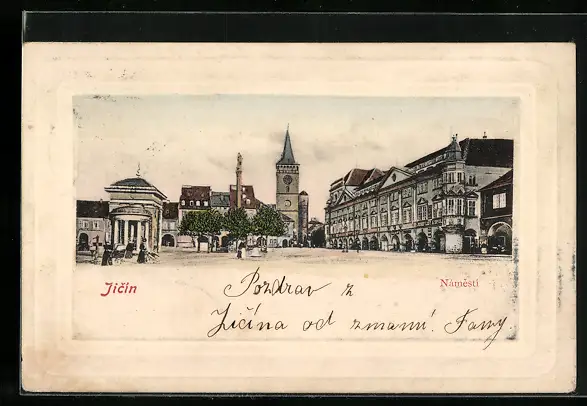 Jičín
Náměstí
Pozdrav z
Jičína od známí. Fany